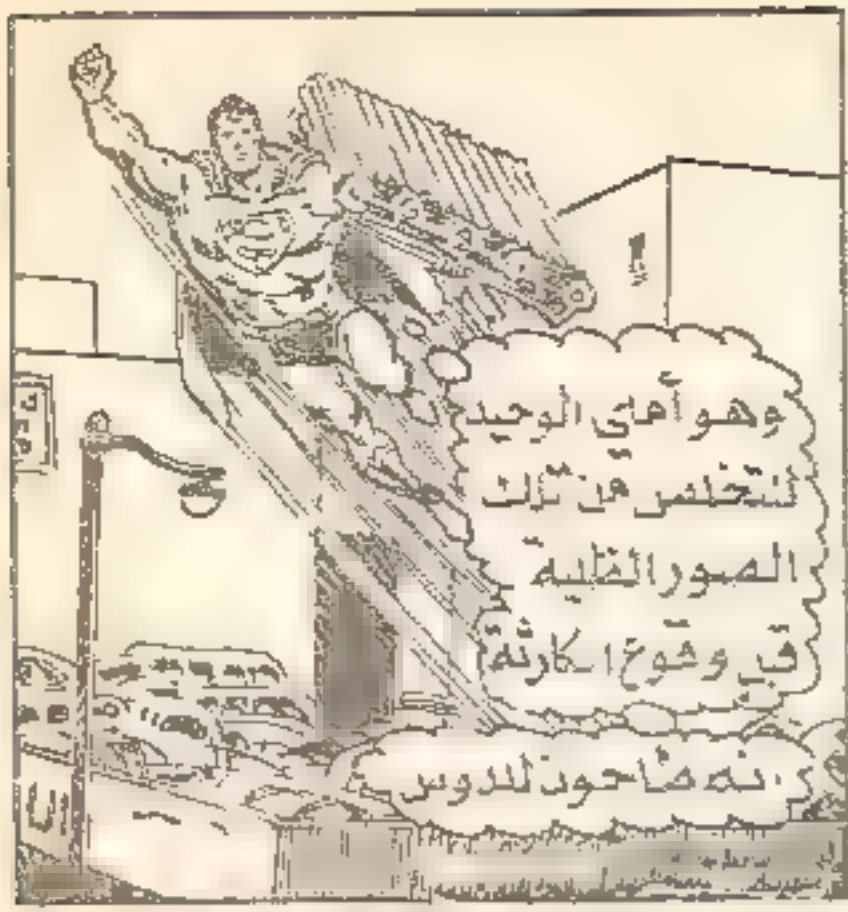 وهو أملي الوحيد
للتخلص من تلك
الصور الظلية
قبل وقوع الكارثة
للدروس